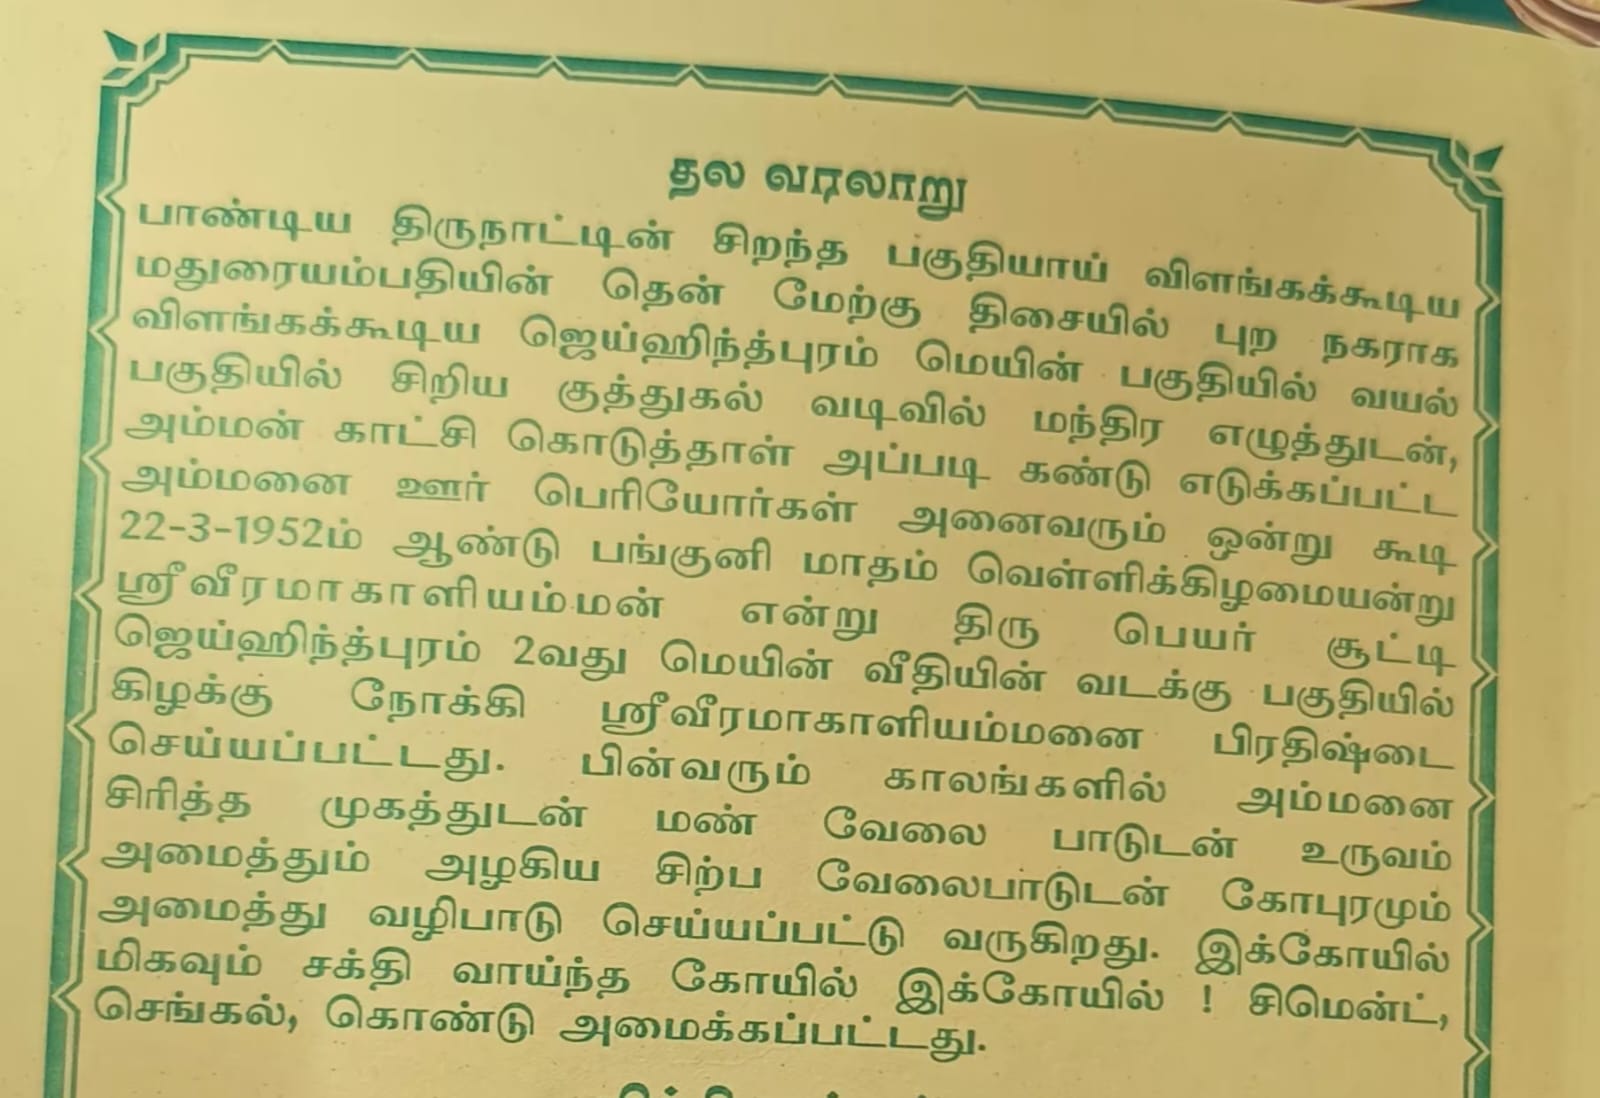 தல வரலாறு
பாண்டிய திருநாட்டின் சிறந்த பகுதியாய் விளங்கக்கூடிய
மதுரையம்பதியின் தென் மேற்கு திசையில் புற நகராக
விளங்கக்கூடிய ஜெய்ஹிந்த்புரம் மெயின் பகுதியில் வயல்
பகுதியில் சிறிய குத்துகல் வடிவில் மந்திர எழுத்துடன்,
அம்மன் காட்சி கொடுத்தாள் அப்படி கண்டு எடுக்கப்பட்ட
அம்மனை ஊர் பெரியோர்கள் அனைவரும் ஒன்று கூடி
22-3-1952ம் ஆண்டு பங்குனி மாதம் வெள்ளிக்கிழமையன்று
ஸ்ரீவீரமாகாளியம்மன் என்று திரு பெயர் சூட்டி
ஜெய்ஹிந்த்புரம் 2வது மெயின் வீதியின் வடக்கு பகுதியில்
கிழக்கு நோக்கி ஸ்ரீவீரமாகாளியம்மனை பிரதிஷ்டை
செய்யப்பட்டது. பின்வரும் காலங்களில் அம்மனை
சிரித்த முகத்துடன் மண் வேலை பாடுடன் உருவம்
அமைத்தும் அழகிய சிற்ப வேலைபாடுடன் கோபுரமும்
அமைத்து வழிபாடு செய்யப்பட்டு வருகிறது. இக்கோயில்
மிகவும் சக்தி வாய்ந்த கோயில் இக்கோயில் ! சிமென்ட்,
செங்கல், கொண்டு அமைக்கப்பட்டது.